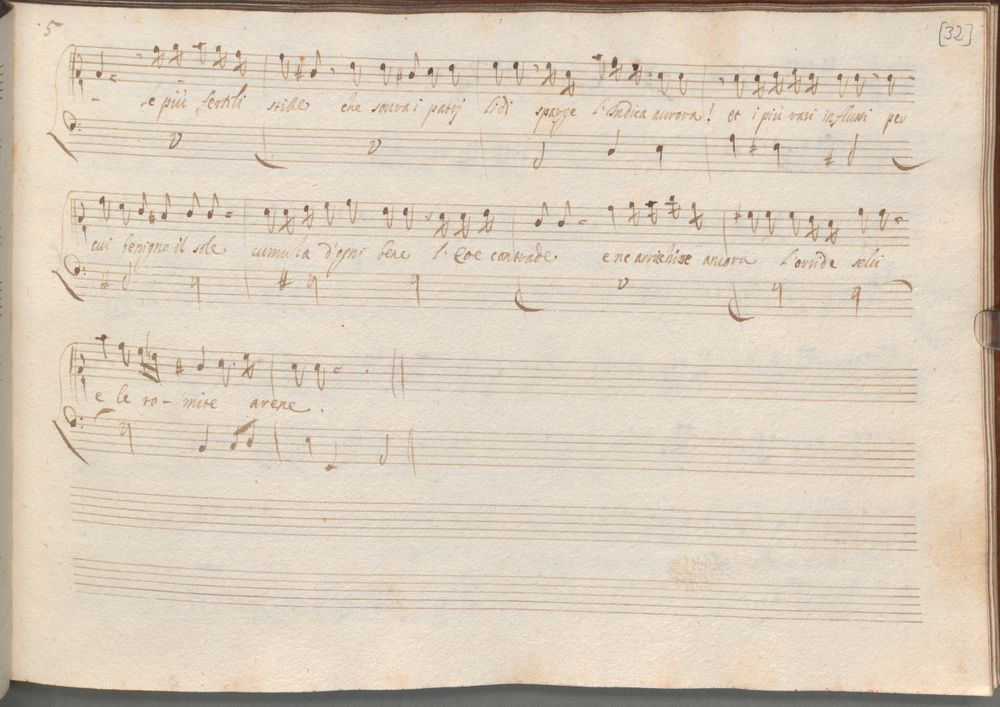 5
[32]
- le più fertili stille che sovra i patrj lidi sparge l'Indica aurora! et i più rari influssi per
cui benigno il sole cumula d'ogni bene l'Eoe contrade e ne arrichisce ancora l'oride selu
e le ro- mite arene.